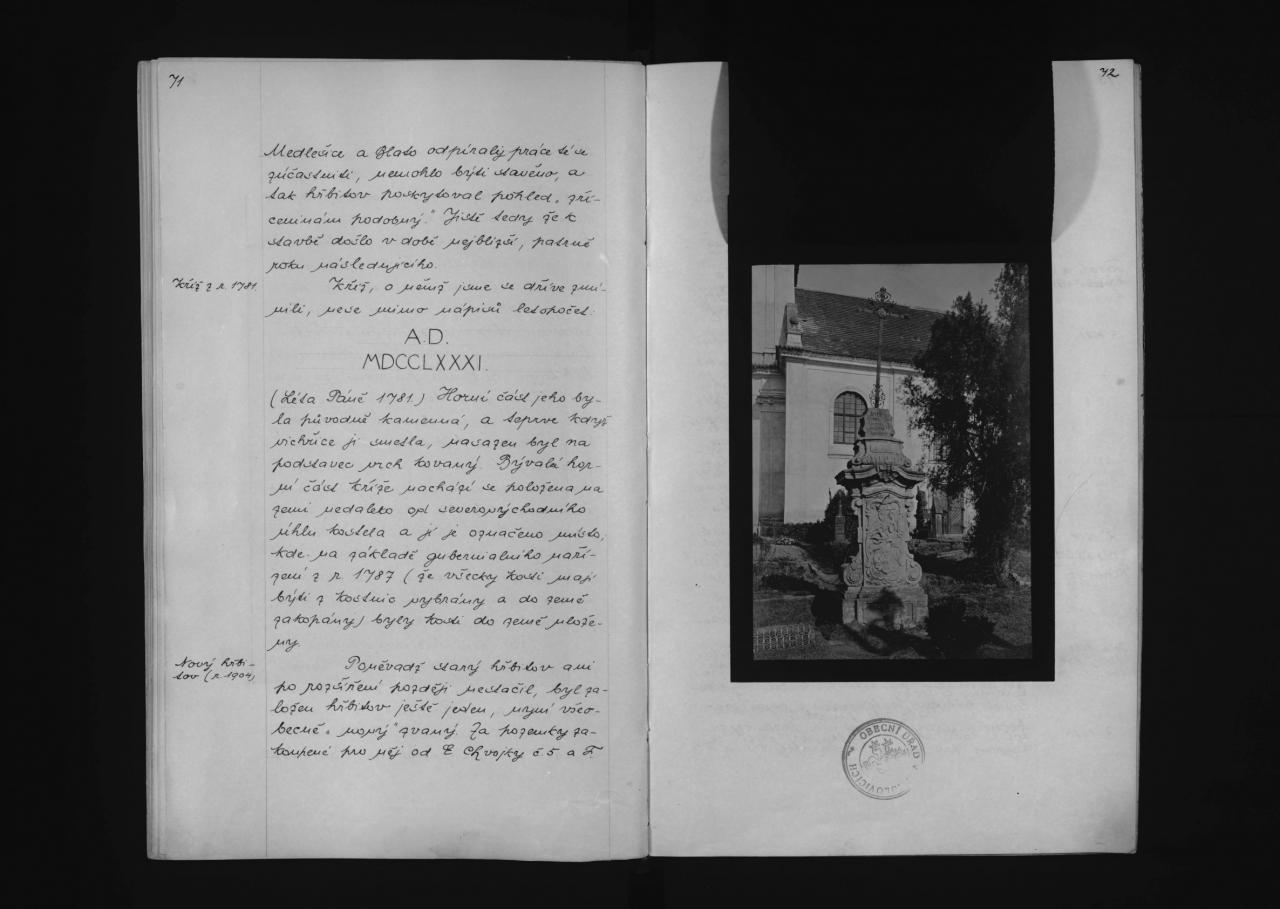 71
Medlešice a Blato odpíraly práce té se
zúčastniti, nemohlo býti stavěno, a
tak hřbitov poskytoval pohled „zří-
ceninám podobný.“ Jisté tedy že k
stavbě došlo v době nejbližší, patrně
roku následujícího.
Kříž z r. 1781.
Kříž, o němž jsme se dříve zmí-
nili, nese mimo nápisů letopočet:
A. D.
MDCCLXXXI.
(Léta Páně 1781.) Horní část jeho by-
la původně kamenná, a teprve když
vichřice ji smetla, nasazen byl na
podstavec vrch kovaný. Bývalá hor-
ní část kříže nachází se položena na
zemi nedaleko od severovýchodního
úhlu kostela a jí je označeno místo,
kde na základě guberniálního naří-
zení z r. 1787 (že všecky kosti mají
býti z kostnic vybrány a do země
zakopány) byly kosti do země ulože-
ny.
Nový hřbi-
tov (r. 1904)
Poněvadž starý hřbitov ani
po rozšíření později nestačil, byl za-
ložen hřbitov ještě jeden, nyní všeo-
becně „nový“ zvaný. Za pozemky za-
koupené pro něj od E. Chvojky č. 5 a F.
72
OBECNÍ ÚŘAD